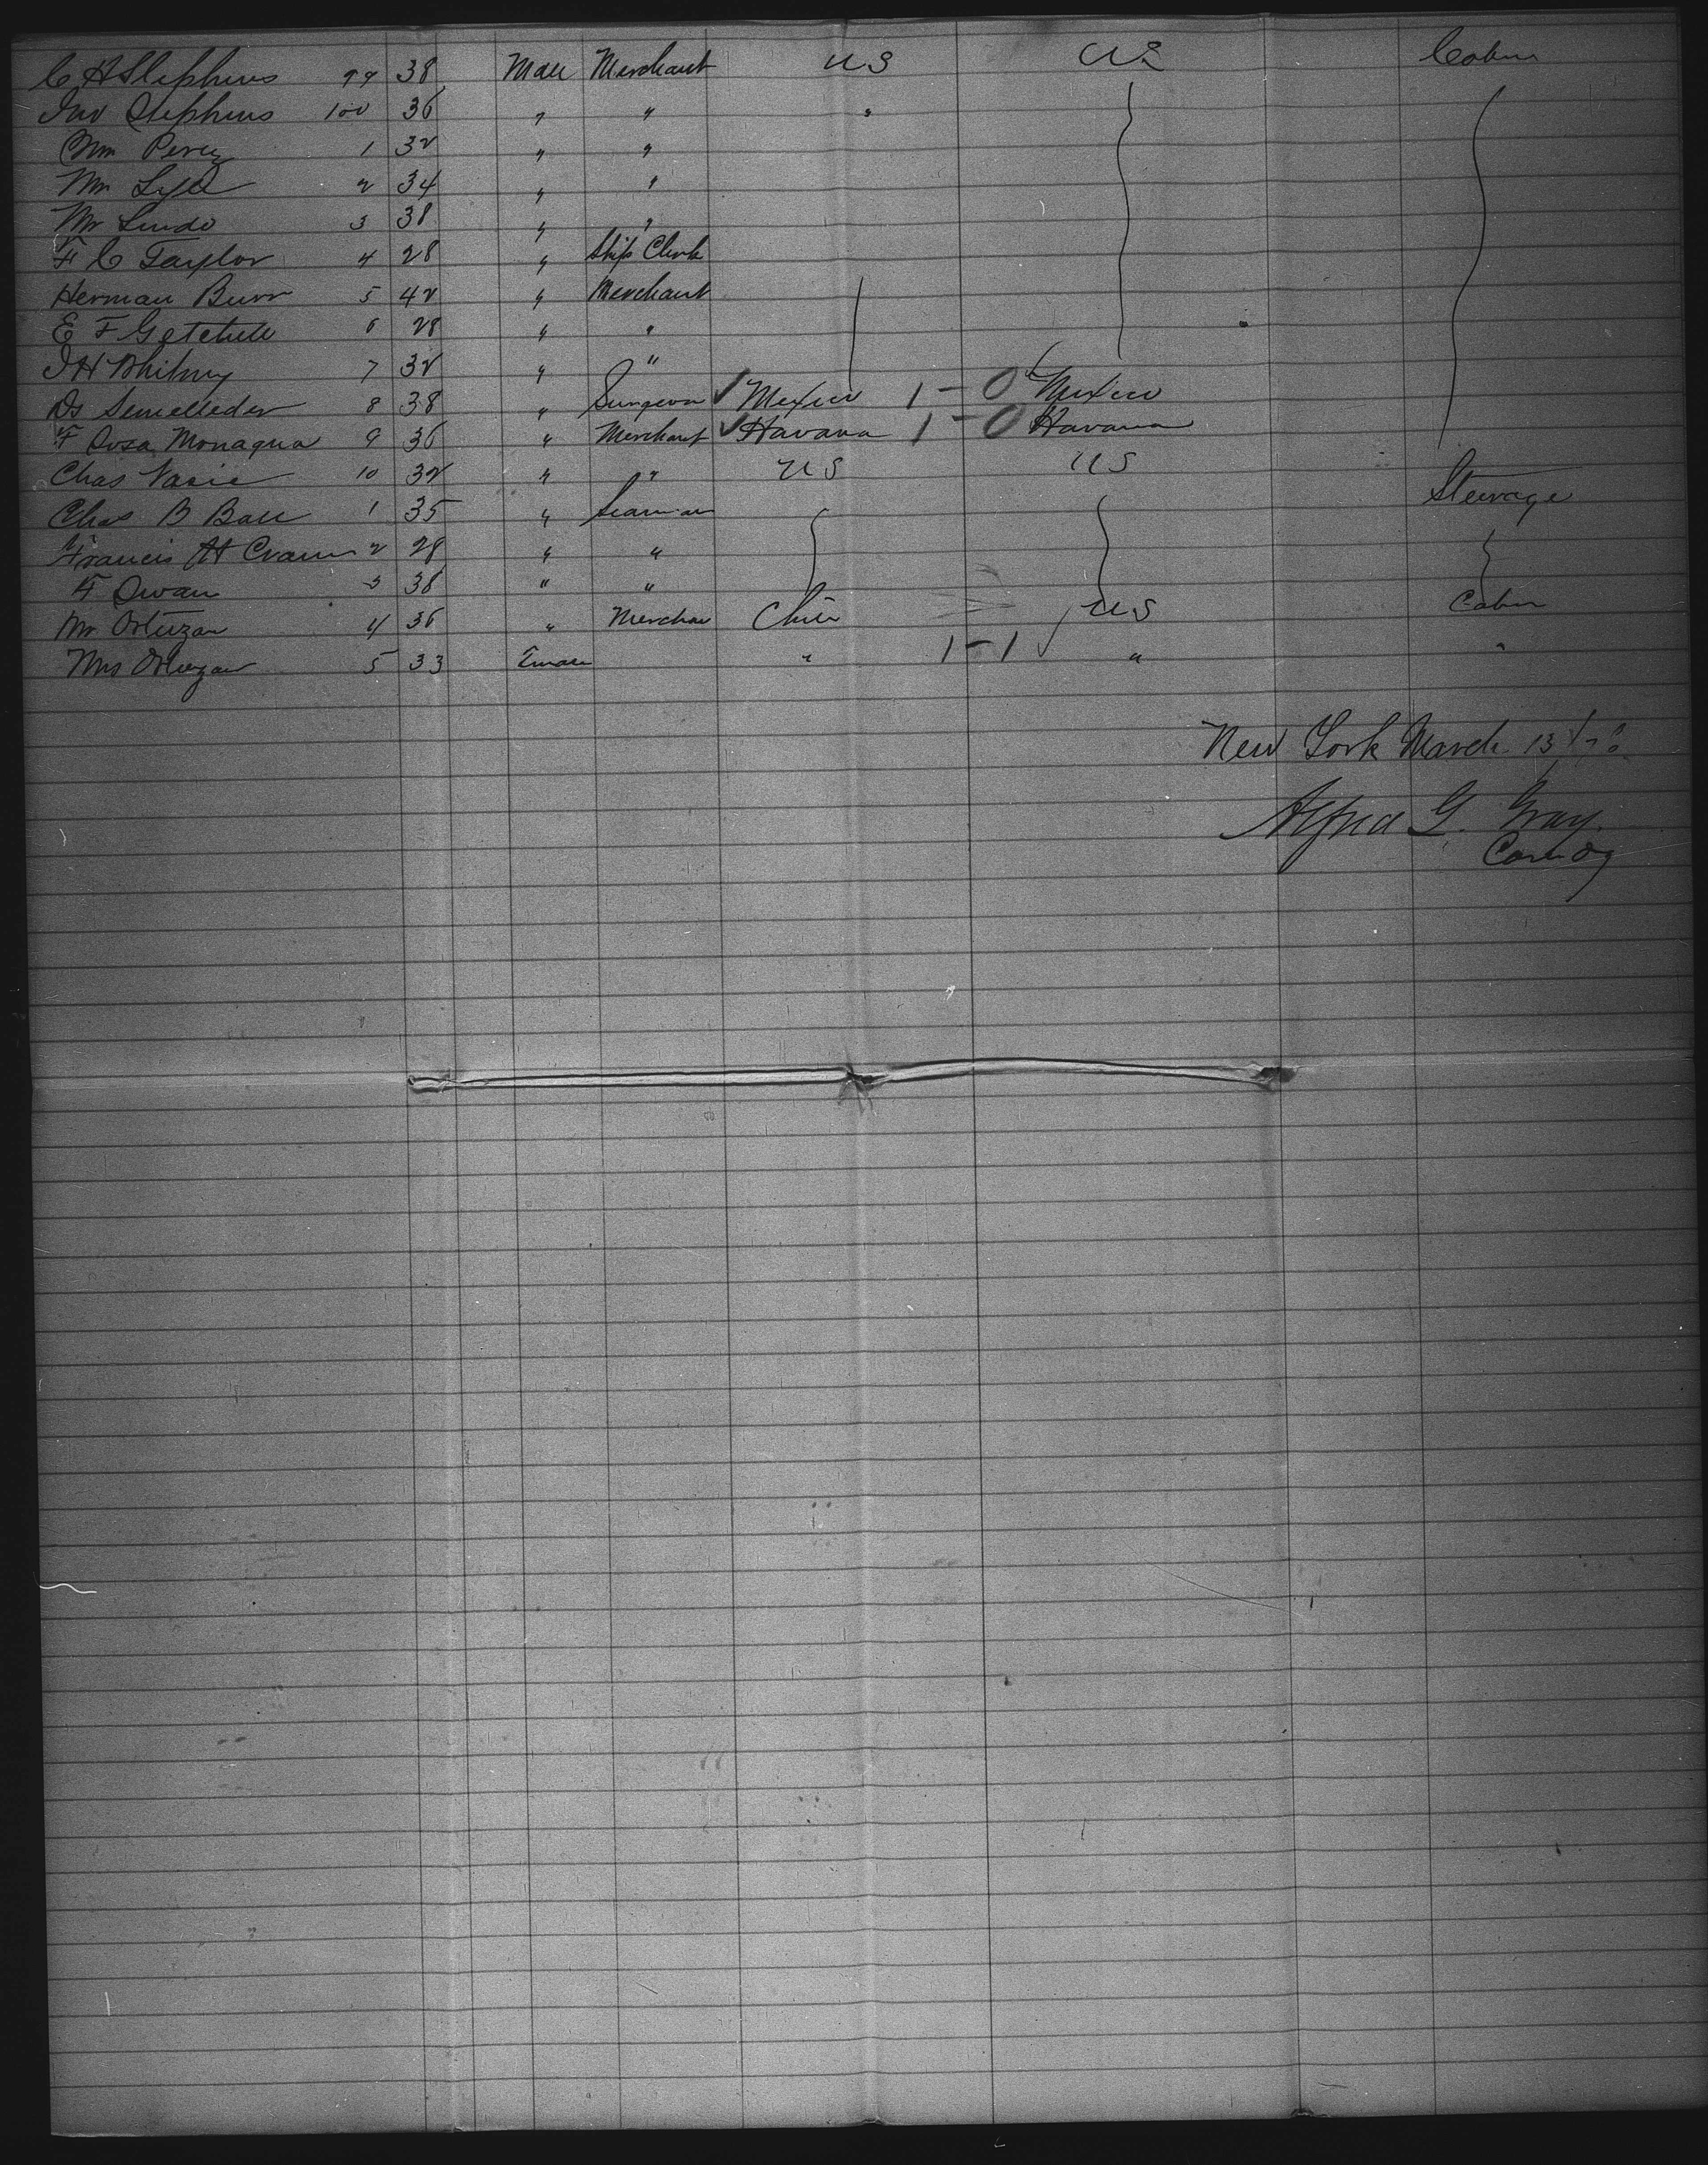 C H Stephens 99 38 Male Merchant US US Cabin
Jno Stephens 100 36 " " "
Wm Perez 1 32 " "
Wm Lyll 2 34 " "
Mr Lindo 3 38 " "
F C Taylor 4 28 " Ship Clerk
Herman Burr 5 42 " Merchant
E F Getchell 6 28 " "
J H Whitney 7 32 " "
Dr Semelleder 8 38 " Surgeon ✓ Mexico 1-0 Mexico
F Sosa Monagua 9 36 " Merchant ✓ Havana 1-0 Havana
Chas 10 32 " " US US Steerage
Chas B Ball 1 35 " Seaman
Francis H Cram 2 28 " "
F Swan 3 38 " "
Mr Ortuzar 4 36 " Merchan Chili US Cabin
Mrs Ortuzar 5 33 Female " 1-1 ✓ " "
New York March 13
Alfred G. Gray.